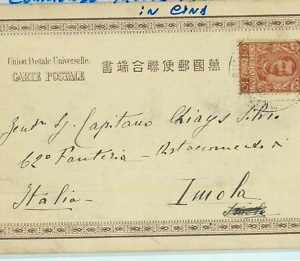 in CINA
Union Postale Universelle.
CARTE POSTALE
書端合聯便郵國萬
Sig. Capitano Chiays Silvio
62° Fanteria - Distaccamento di
Italia - Imola